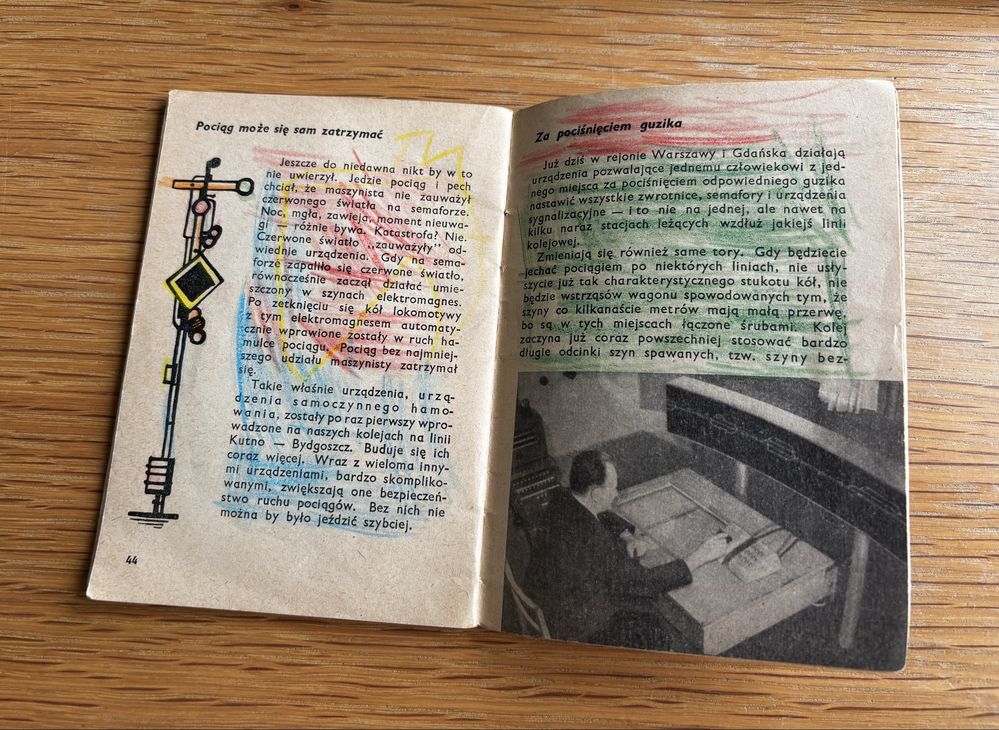 Pociąg może się sam zatrzymać
Jeszcze do niedawna nikt by w to
nie uwierzył. Jedzie pociąg i pech
chciał, że maszynista nie zauważył
czerwonego światła na semaforze.
Noc, mgła, zawieja, moment nieuwa-
gi — różnie bywa. Katastrofa? Nie.
Czerwone światło „zauważyły" od-
wiednie urządzenia. Gdy na sema-
forze zapaliło się czerwone światło,
równocześnie zaczął działać umie-
szczony w szynach elektromagnes.
Po zetknięciu się kół lokomotywy
z tym elektromagnesem automaty-
cznie wprawione zostały w ruch ha-
mulce pociągu. Pociąg bez najmniej-
szego udziału maszynisty zatrzymał
się.
Takie właśnie urządzenia, urzą-
dzenia samoczynnego hamo-
wania, zostały po raz pierwszy wpro-
wadzone na naszych kolejach na linii
Kutno — Bydgoszcz. Buduje się ich
coraz więcej. Wraz z wieloma inny-
mi urządzeniami, bardzo skompliko-
wanymi, zwiększają one bezpieczeń-
stwo ruchu pociągów. Bez nich nie
można by było jeździć szybciej.
44
Za pociśnięciem guzika
Już dziś w rejonie Warszawy i Gdańska działają
urządzenia pozwalające jednemu człowiekowi z jed-
nego miejsca za pociśnięciem odpowiedniego guzika
nastawić wszystkie zwrotnice, semafory i urządzenia
sygnalizacyjne — i to nie na jednej, ale nawet na
kilku naraz stacjach leżących wzdłuż jakiejś linii
kolejowej.
Zmieniają się również same tory. Gdy będziecie
jechać pociągiem po niektórych liniach, nie usły-
szycie już tak charakterystycznego stukotu kół, nie
będzie wstrząsów wagonu spowodowanych tym, że
szyny co kilkanaście metrów mają małą przerwę,
bo są w tych miejscach łączone śrubami. Kolej
zaczyna już coraz powszechniej stosować bardzo
długie odcinki szyn spawanych, tzw. szyny bez-